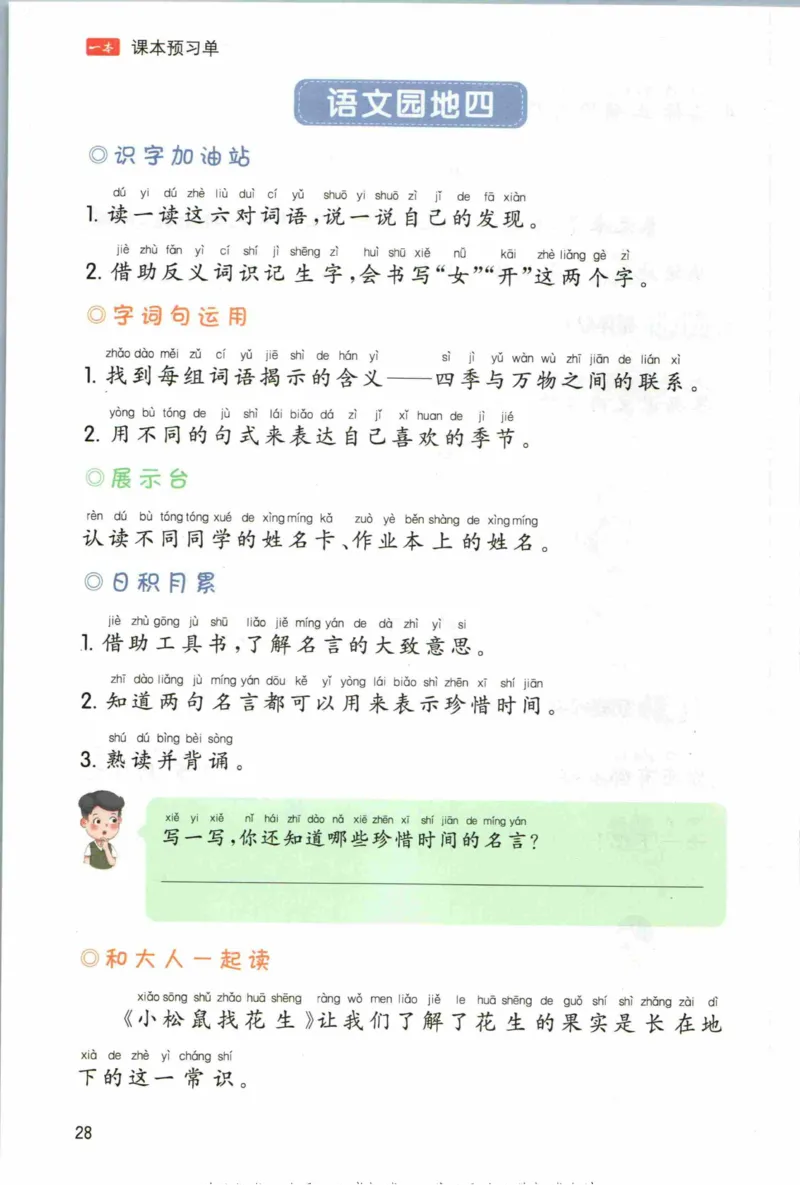 一本 课本预习单
语文园地四
◎识字加油站
dú yi dú zhè liù duì cí yǔ shuō yi shuō zì jǐ de fā xiàn
1. 读一读这六对词语，说一说自己的发现。
jiè zhù fǎn yì cí shí jì shēng zì huì shū xiě nǚ kāi zhè liǎng gè zì
2. 借助反义词识记生字，会书写“女”“开”这两个字。
◎字词句运用
zhǎo dào měi zǔ cí yǔ jiē shì de hán yì sì jì yǔ wàn wù zhī jiān de lián xì
1. 找到每组词语揭示的含义——四季与万物之间的联系。
yòng bù tóng de jù shì lái biǎo dá zì jǐ xǐ huan de jì jié
2. 用不同的句式来表达自己喜欢的季节。
◎展示台
rèn dú bù tóng tóng xué de xìng míng kǎ zuò yè běn shàng de xìng míng
认读不同同学的姓名卡、作业本上的姓名。
◎日积月累
jiè zhù gōng jù shū liǎo jiě míng yán de dà zhì yì si
1. 借助工具书，了解名言的大致意思。
zhī dào liǎng jù míng yán dōu kě yǐ yòng lái biǎo shì zhēn xī shí jiān
2. 知道两句名言都可以用来表示珍惜时间。
shú dú bìng bèi sòng
3. 熟读并背诵。
xiě yi xiě nǐ hái zhī dào nǎ xiē zhēn xī shí jiān de míng yán
写一写，你还知道哪些珍惜时间的名言？
◎和大人一起读
xiǎo sōng shǔ zhǎo huā shēng ràng wǒ men liǎo jiě le huā shēng de guǒ shí shì zhǎng zài dì
《小松鼠找花生》让我们了解了花生的果实是长在地
xià de zhè yì cháng shí
下的这一常识。
28